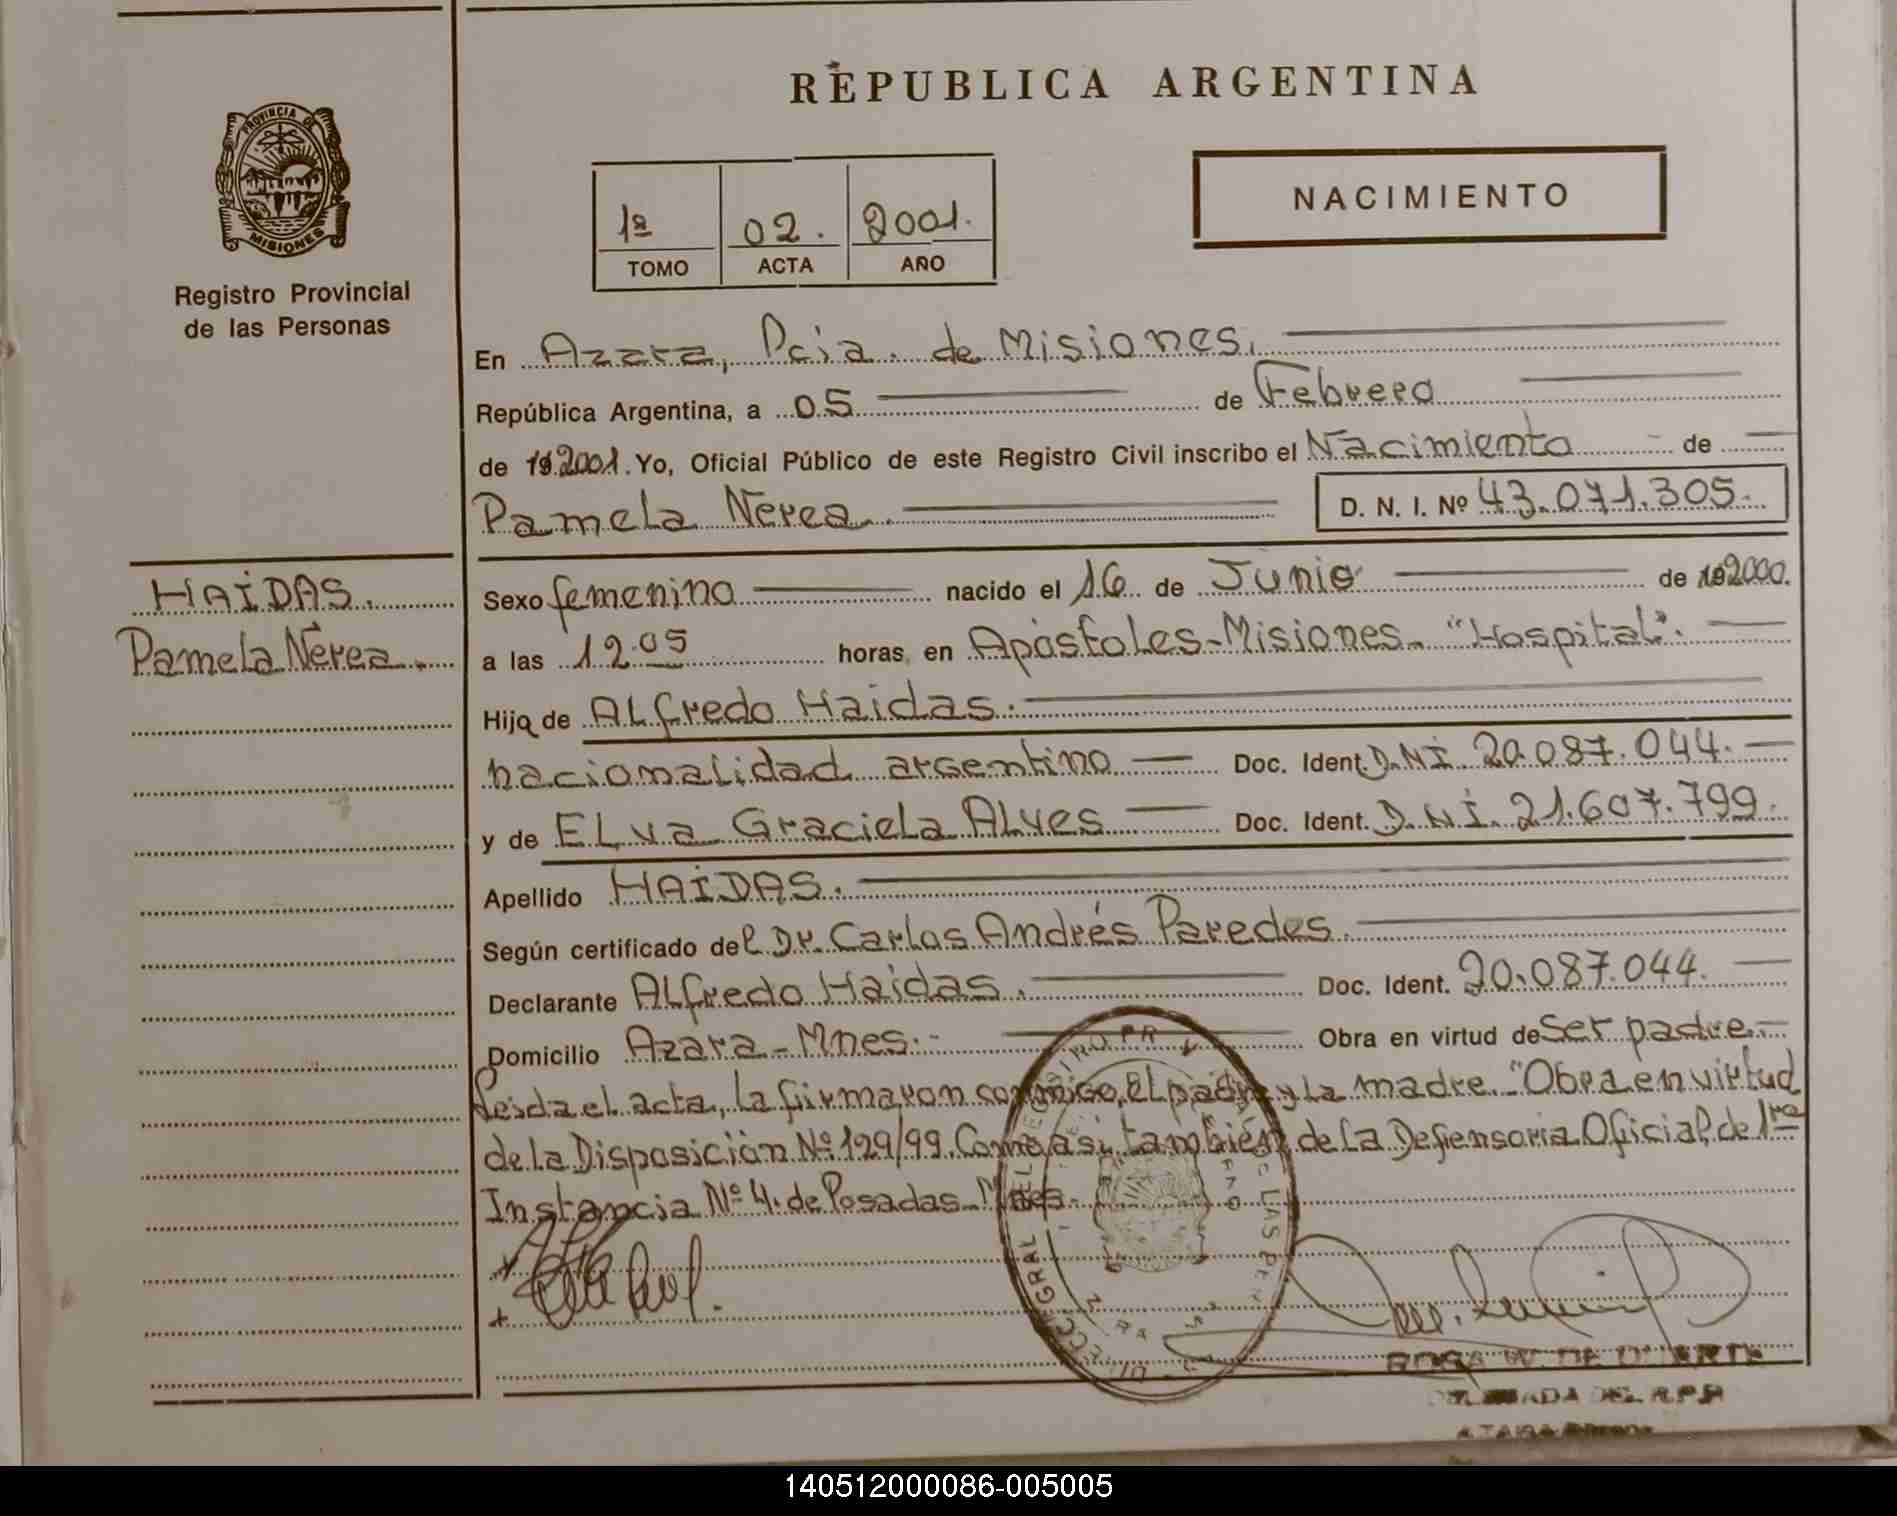 REPUBLICA ARGENTINA
PROVINCIA DE
MISIONES
Registro Provincial
de las Personas
1ª 02. 2001.
TOMO ACTA AÑO
NACIMIENTO
En Azara, Pcia. de Misiones.
República Argentina, a 05 de Febrero
de 19 2001. Yo, Oficial Público de este Registro Civil inscribo el Nacimiento de
Pamela Nerea. D. N. I. Nº 43.071.305.
HAIDAS.
Pamela Nerea.
Sexo femenino nacido el 16 de Junio de 19 2000.
a las 12.05 horas, en Apóstoles-Misiones. "Hospital".
Hija de Alfredo Haidas.
nacionalidad argentino Doc. Ident. D.N.I. 20.087.044.
y de Elva Graciela Alves Doc. Ident. D.N.I. 21.607.799.
Apellido HAIDAS.
Según certificado del Dr. Carlos Andrés Paredes.
Declarante Alfredo Haidas. Doc. Ident. 20.087.044.
Domicilio Azara-Mnes.- Obra en virtud de Ser padre.-
Leida el acta, la firmaron conmigo, el padre y la madre. "Obra en virtud
de la Disposición Nº 129/99. Como asi también de la Defensoria Oficial de 1ra
Instancia Nº 4. de Posadas-Mnes.
ROSA W. DE DUARTE
DEL R.P.P.
AZARA
140512000086-005005